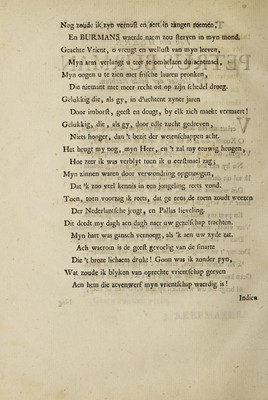 Nog zoude ik zyn vernuft en aert in zangen roemen,
En BURMANS waerde naem zou sterven in myn mond.
Geachte Vrient, o vreugt en wellust van myn leeven,
Myn arm verlangt u teer te omhelzen du
Myn oogen u te zien met frissche lauren pronken,
Die niemant met meer recht oit op zyn schedel droeg.
Gelukkig die, als gy, in d'uchtent zyner jaren
Door imborst, geest en deugt, by elk zich maekt vermaert!
Gelukkig, die, als gy, door edle zucht gedreven,
Niets hooger, dan 't bezit der wetenschappen acht.
Het heugt my nog, myn Heer, en 't zal my eeuwig heugen,
Hoe zeer ik was verblyt toen ik u eerstmael zag;
Myn zinnen waren door verwondring opgetoogen,
Dat 'k zoo veel kennis in een jongeling reets vond.
Toen, toen voorzag ik reets, dat ge eens de roem zoudt weezen
Der Nederlantsche jeugt, en Pallas lieveling.
Dit deedt my dagh aen dagh naer uw gezelschap trachten.
Myn hart was gansch vernoegt, als 'k aen uw zyde zat.
Ach waerom is de geest gevoelig van de smarte
Die 't broze lichaem drukt! Goon was ik zonder pyn,
Wat zoude ik blyken van oprechte vrientschap geeven
Aen hem die zevenwerf myn vrientschap waerdig is!
Indien